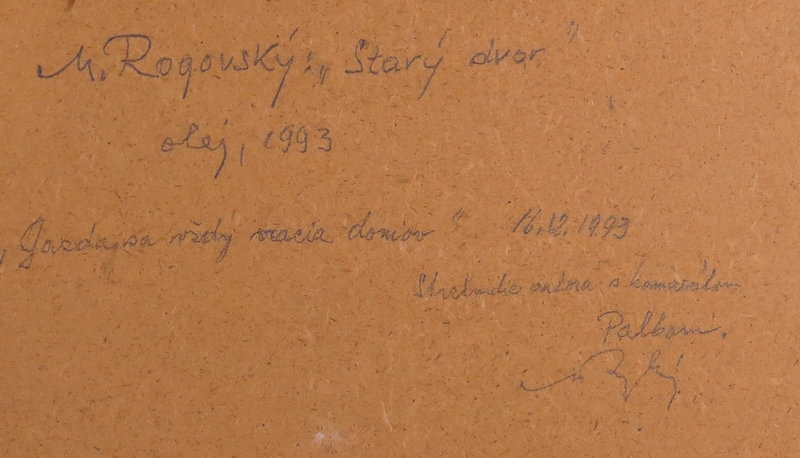 M. Rogovský: „Starý dvor"
olej, 1993
„Gazda sa vždy vracia domov" 16.12.1993
Stretnutie autora s kamarátom
Palkom.